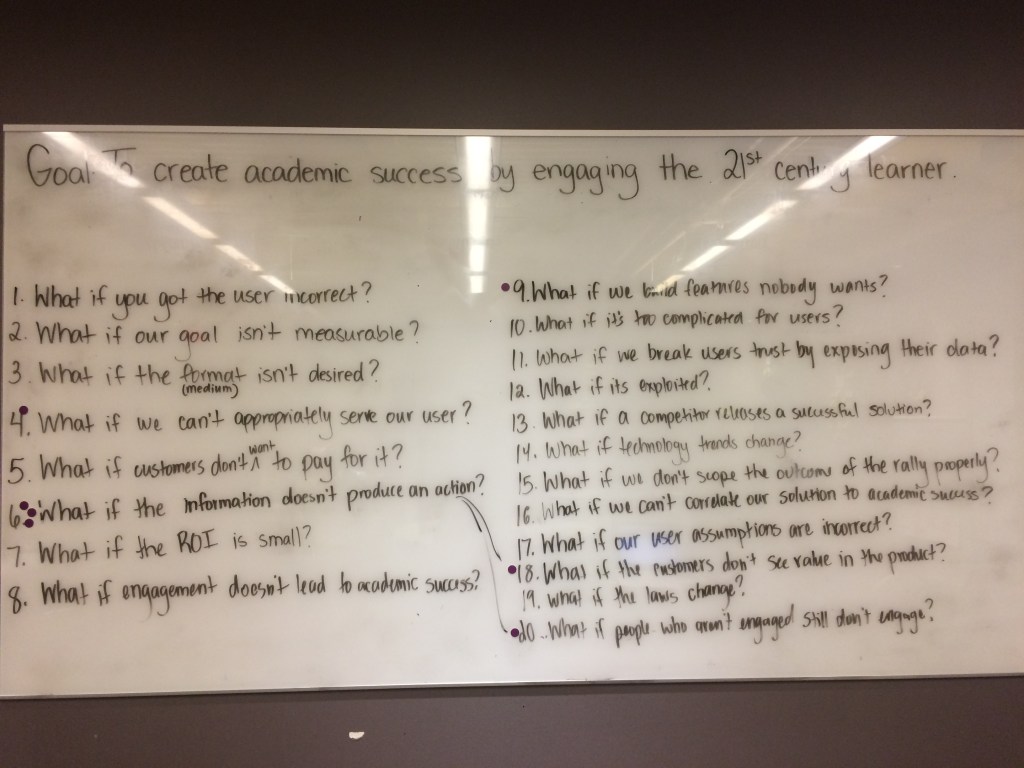 Goal: To create academic success by engaging the 21st century learner.
1. What if you got the user incorrect?
2. What if our goal isn't measurable?
3. What if the format isn't desired?
(medium)
4. What if we can't appropriately serve our user?
5. What if customers don't want to pay for it?
6. What if the information doesn't produce an action?
7. What if the ROI is small?
8. What if engagement doesn't lead to academic success?
9. What if we build features nobody wants?
10. What if it's too complicated for users?
11. What if we break users trust by exposing their data?
12. What if its exploited?
13. What if a competitor releases a successful solution?
14. What if technology trends change?
15. What if we don't scope the outcome of the rally properly?
16. What if we can't correlate our solution to academic success?
17. What if our user assumptions are incorrect?
18. What if the customers don't see value in the product?
19. What if the laws change?
20. What if people who aren't engaged still don't engage?